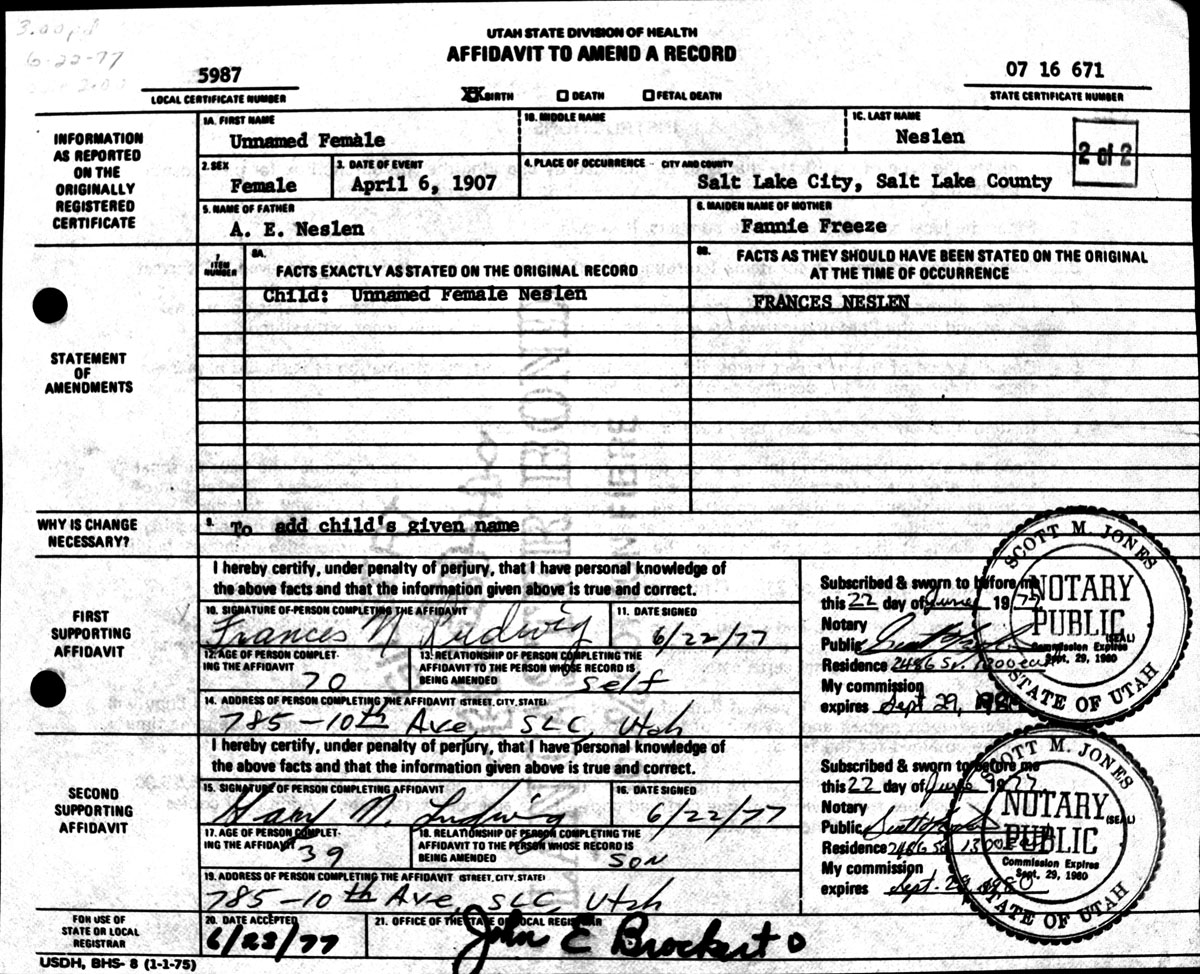 3.00pd
6-22-77
UTAH STATE DIVISION OF HEALTH
AFFIDAVIT TO AMEND A RECORD
5987
LOCAL CERTIFICATE NUMBER
XX BIRTH DEATH FETAL DEATH
07 16 671
STATE CERTIFICATE NUMBER
INFORMATION AS REPORTED ON THE ORIGINALLY REGISTERED CERTIFICATE
1A. FIRST NAME 1B. MIDDLE NAME 1C. LAST NAME
Unnamed Female Neslen
2 of 2
2. SEX 3. DATE OF EVENT 4. PLACE OF OCCURRENCE - CITY AND COUNTY
Female April 6, 1907 Salt Lake City, Salt Lake County
5. NAME OF FATHER 6. MAIDEN NAME OF MOTHER
A. E. Neslen Fannie Freeze
7. ITEM NUMBER
8A. FACTS EXACTLY AS STATED ON THE ORIGINAL RECORD
8B. FACTS AS THEY SHOULD HAVE BEEN STATED ON THE ORIGINAL
AT THE TIME OF OCCURRENCE
Child: Unnamed Female Neslen FRANCES NESLEN
STATEMENT OF AMENDMENTS
WHY IS CHANGE NECESSARY?
9. To add child's given name
FIRST SUPPORTING AFFIDAVIT
I hereby certify, under penalty of perjury, that I have personal knowledge of
the above facts and that the information given above is true and correct.
10. SIGNATURE OF PERSON COMPLETING THE AFFIDAVIT 11. DATE SIGNED
Frances N Ludwig 6/22/77
12. AGE OF PERSON COMPLETING THE AFFIDAVIT
70
13. RELATIONSHIP OF PERSON COMPLETING THE
AFFIDAVIT TO THE PERSON WHOSE RECORD IS
BEING AMENDED
self
14. ADDRESS OF PERSON COMPLETING THE AFFIDAVIT (STREET, CITY, STATE)
785-10th Ave, SLC, Utah
Subscribed & sworn to before me
this 22 day of June 1977
Notary
Public
(SEAL)
Residence 2486 So. 1300 ea
My commission
expires Sept 29, 1980
SCOTT M. JONES
NOTARY
PUBLIC
Commission Expires
Sept. 29, 1980
STATE OF UTAH
SECOND SUPPORTING AFFIDAVIT
I hereby certify, under penalty of perjury, that I have personal knowledge of
the above facts and that the information given above is true and correct.
15. SIGNATURE OF PERSON COMPLETING AFFIDAVIT 16. DATE SIGNED
Gary N. Ludwig 6/22/77
17. AGE OF PERSON COMPLETING THE AFFIDAVIT
39
18. RELATIONSHIP OF PERSON COMPLETING THE
AFFIDAVIT TO THE PERSON WHOSE RECORD IS
BEING AMENDED
son
19. ADDRESS OF PERSON COMPLETING THE AFFIDAVIT (STREET, CITY, STATE)
785-10th Ave, SLC, Utah
Subscribed & sworn to before me
this 22 day of June 1977
Notary
Public
(SEAL)
Residence 2486 So. 1300
My commission
expires Sept. 29, 1980
SCOTT M. JONES
NOTARY
PUBLIC
Commission Expires
Sept. 29, 1980
STATE OF UTAH
FOR USE OF STATE OR LOCAL REGISTRAR
20. DATE ACCEPTED 21. OFFICE OF THE STATE OR LOCAL REGISTRAR
6/23/77 John E Brockert
USDH, BHS- 8 (1-1-75)